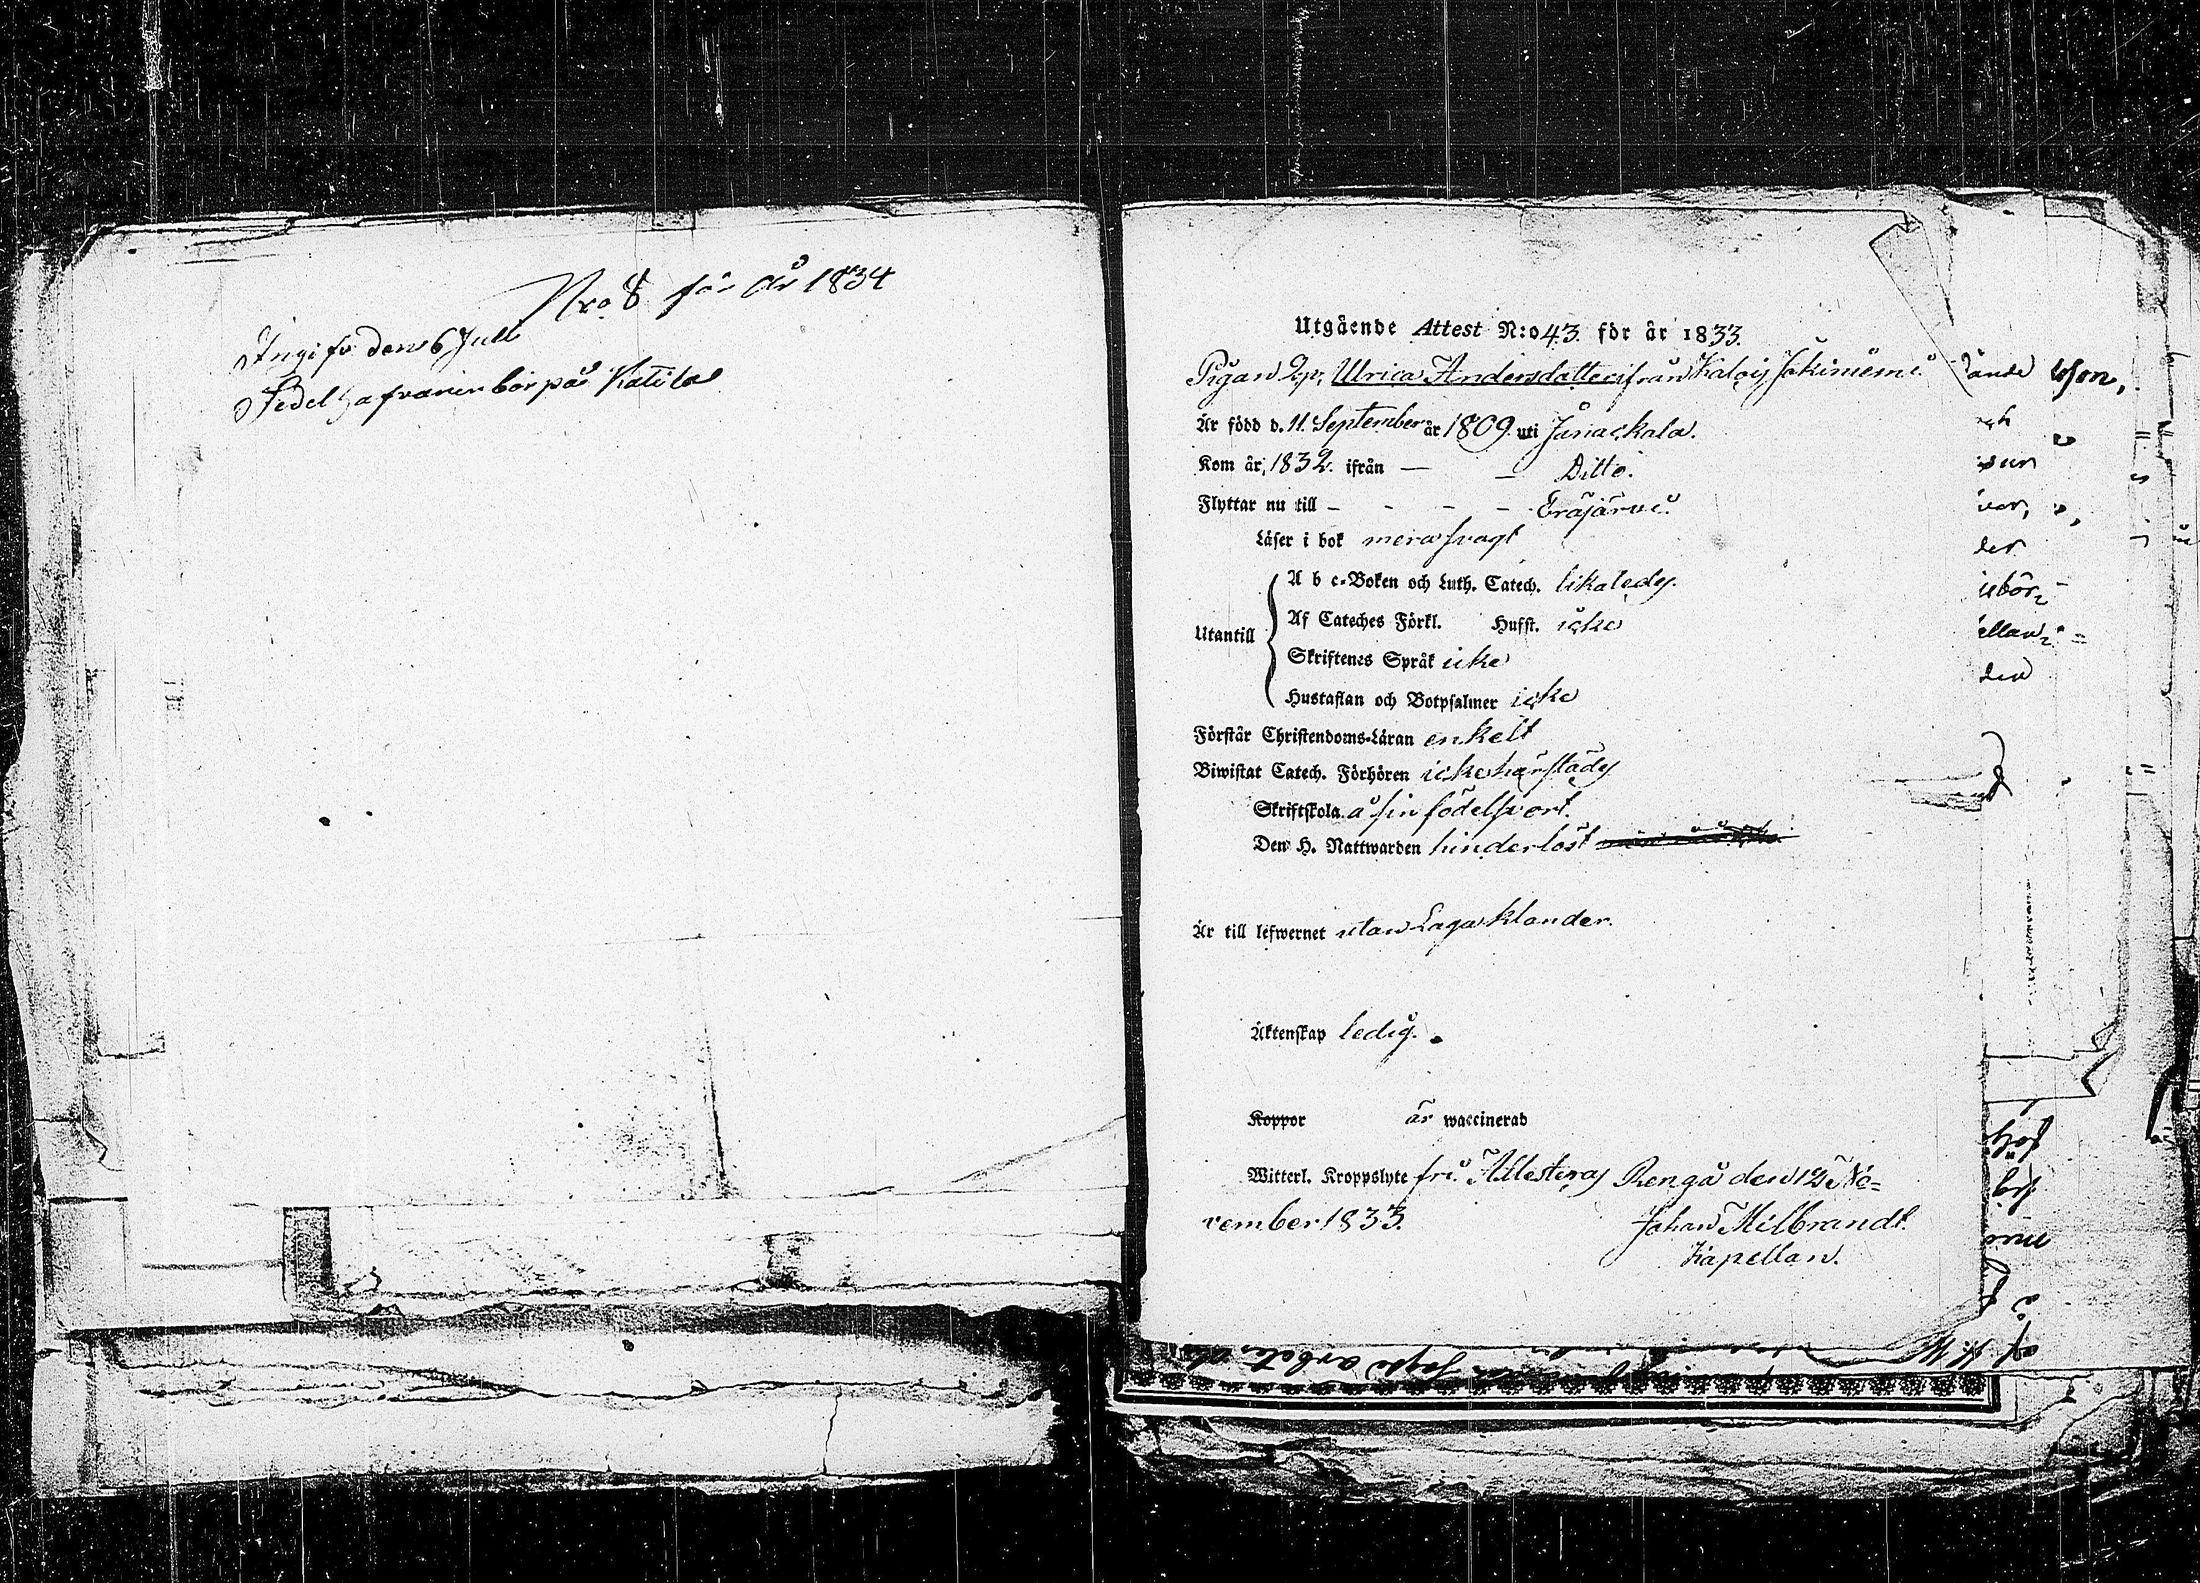 Nro 8 för År 1834
Ingifv. den 6 Juli
Sedelhafvarin bor på Katila
Utgående Attest N:o 43. för år 1833.
Pigan Ulrica Andersdotter ifrån Jokiniemi
Är född d. 11. September år 1809. uti Janackala.
Kom år 1832. ifrån — — Ditto.
Flyttar nu till - - - - Eräjärvi.
Läser i bok mera svagt
A b c-Boken och Luth. Catech. likaledes.
Utantill
Af Cateches Förkl. Hufst. icke
Skriftenes Språk icke
Hustaflan och Botpsalmer icke
Förstår Christendoms-Läran enkelt
Biwistat Catech. Förhören icke härstädes
Skriftskola å sin födelseort.
Den H. Nattwarden hinderlöst
Är till lefwernet utan Laga klander.
Äktenskap ledig.
Koppor är waccinerad
Witterl. Kroppslyte fri. Attesteras Rengo den 12 No=
vember 1833. Johan Milbrandt
Kapellan.